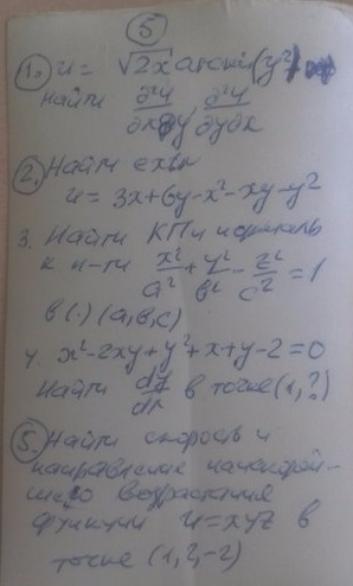 5
1. u = √2x arcsin(y²)
найти ∂²u/∂x∂y, ∂²u/∂y∂x
2. Найти extr
u = 3x+6y-x²-xy-y²
3. Найти КП и нормаль
к п-ти x²/a² + y²/b² - z²/c² = 1
в (·) (a,b,c)
4. x²-2xy+y²+x+y-2=0
Найти dy/dx в точке (1,?)
5. Найти скорость и
направление наискорей-
шего возрастания
функции u=xyz в
точке (1,2,-2)